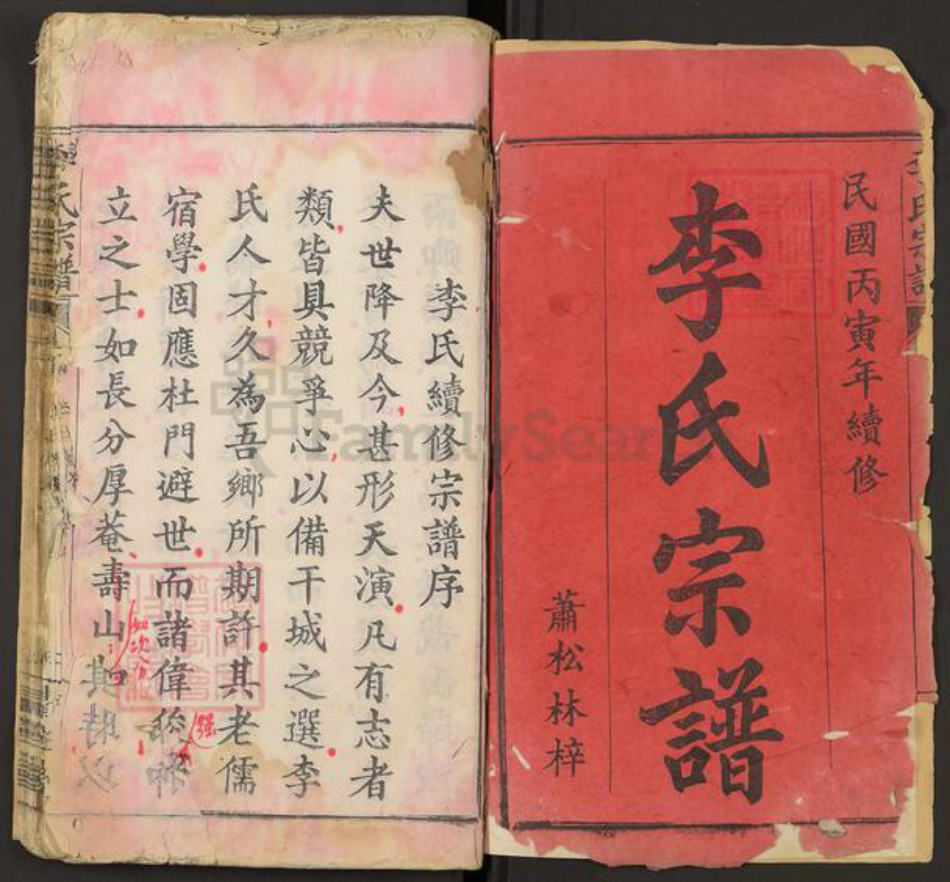 民國丙寅年續修
李氏宗譜
蕭松林梓
李氏續修宗譜序
夫世降及今甚形天演凡有志者
類皆具競爭心以備干城之選李
氏人才久為吾鄉所期許其老儒
宿學固應杜門避世而諸偉
強
立之士如長分厚菴壽山
如次分
氏宗譜
FamilySearch